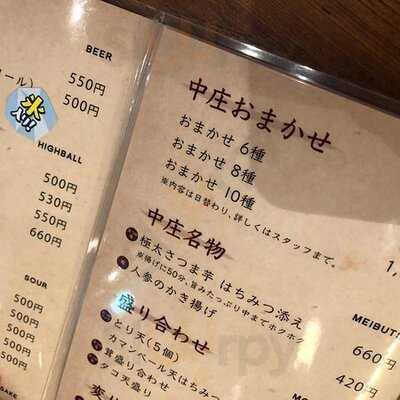 BEER
ール)
550円
500円
氷
入り!!
HIGHBALL
500円
530円
550円
660円
SOUR
500円
500円
500円
500円
中庄おまかせ
おまかせ 6種
おまかせ 8種
おまかせ 10種
※内容は日替わり、詳しくはスタッフまで。
1,
中庄名物
MEIBUT
極太さつま芋 はちみつ添え
660
※揚げに50分、旨みたっぷり中までホクホク
人参のかき揚げ
420
盛り合わせ
とり天(5個)
カマンベール天はちみつ
茸盛り合わせ
タコ天盛り